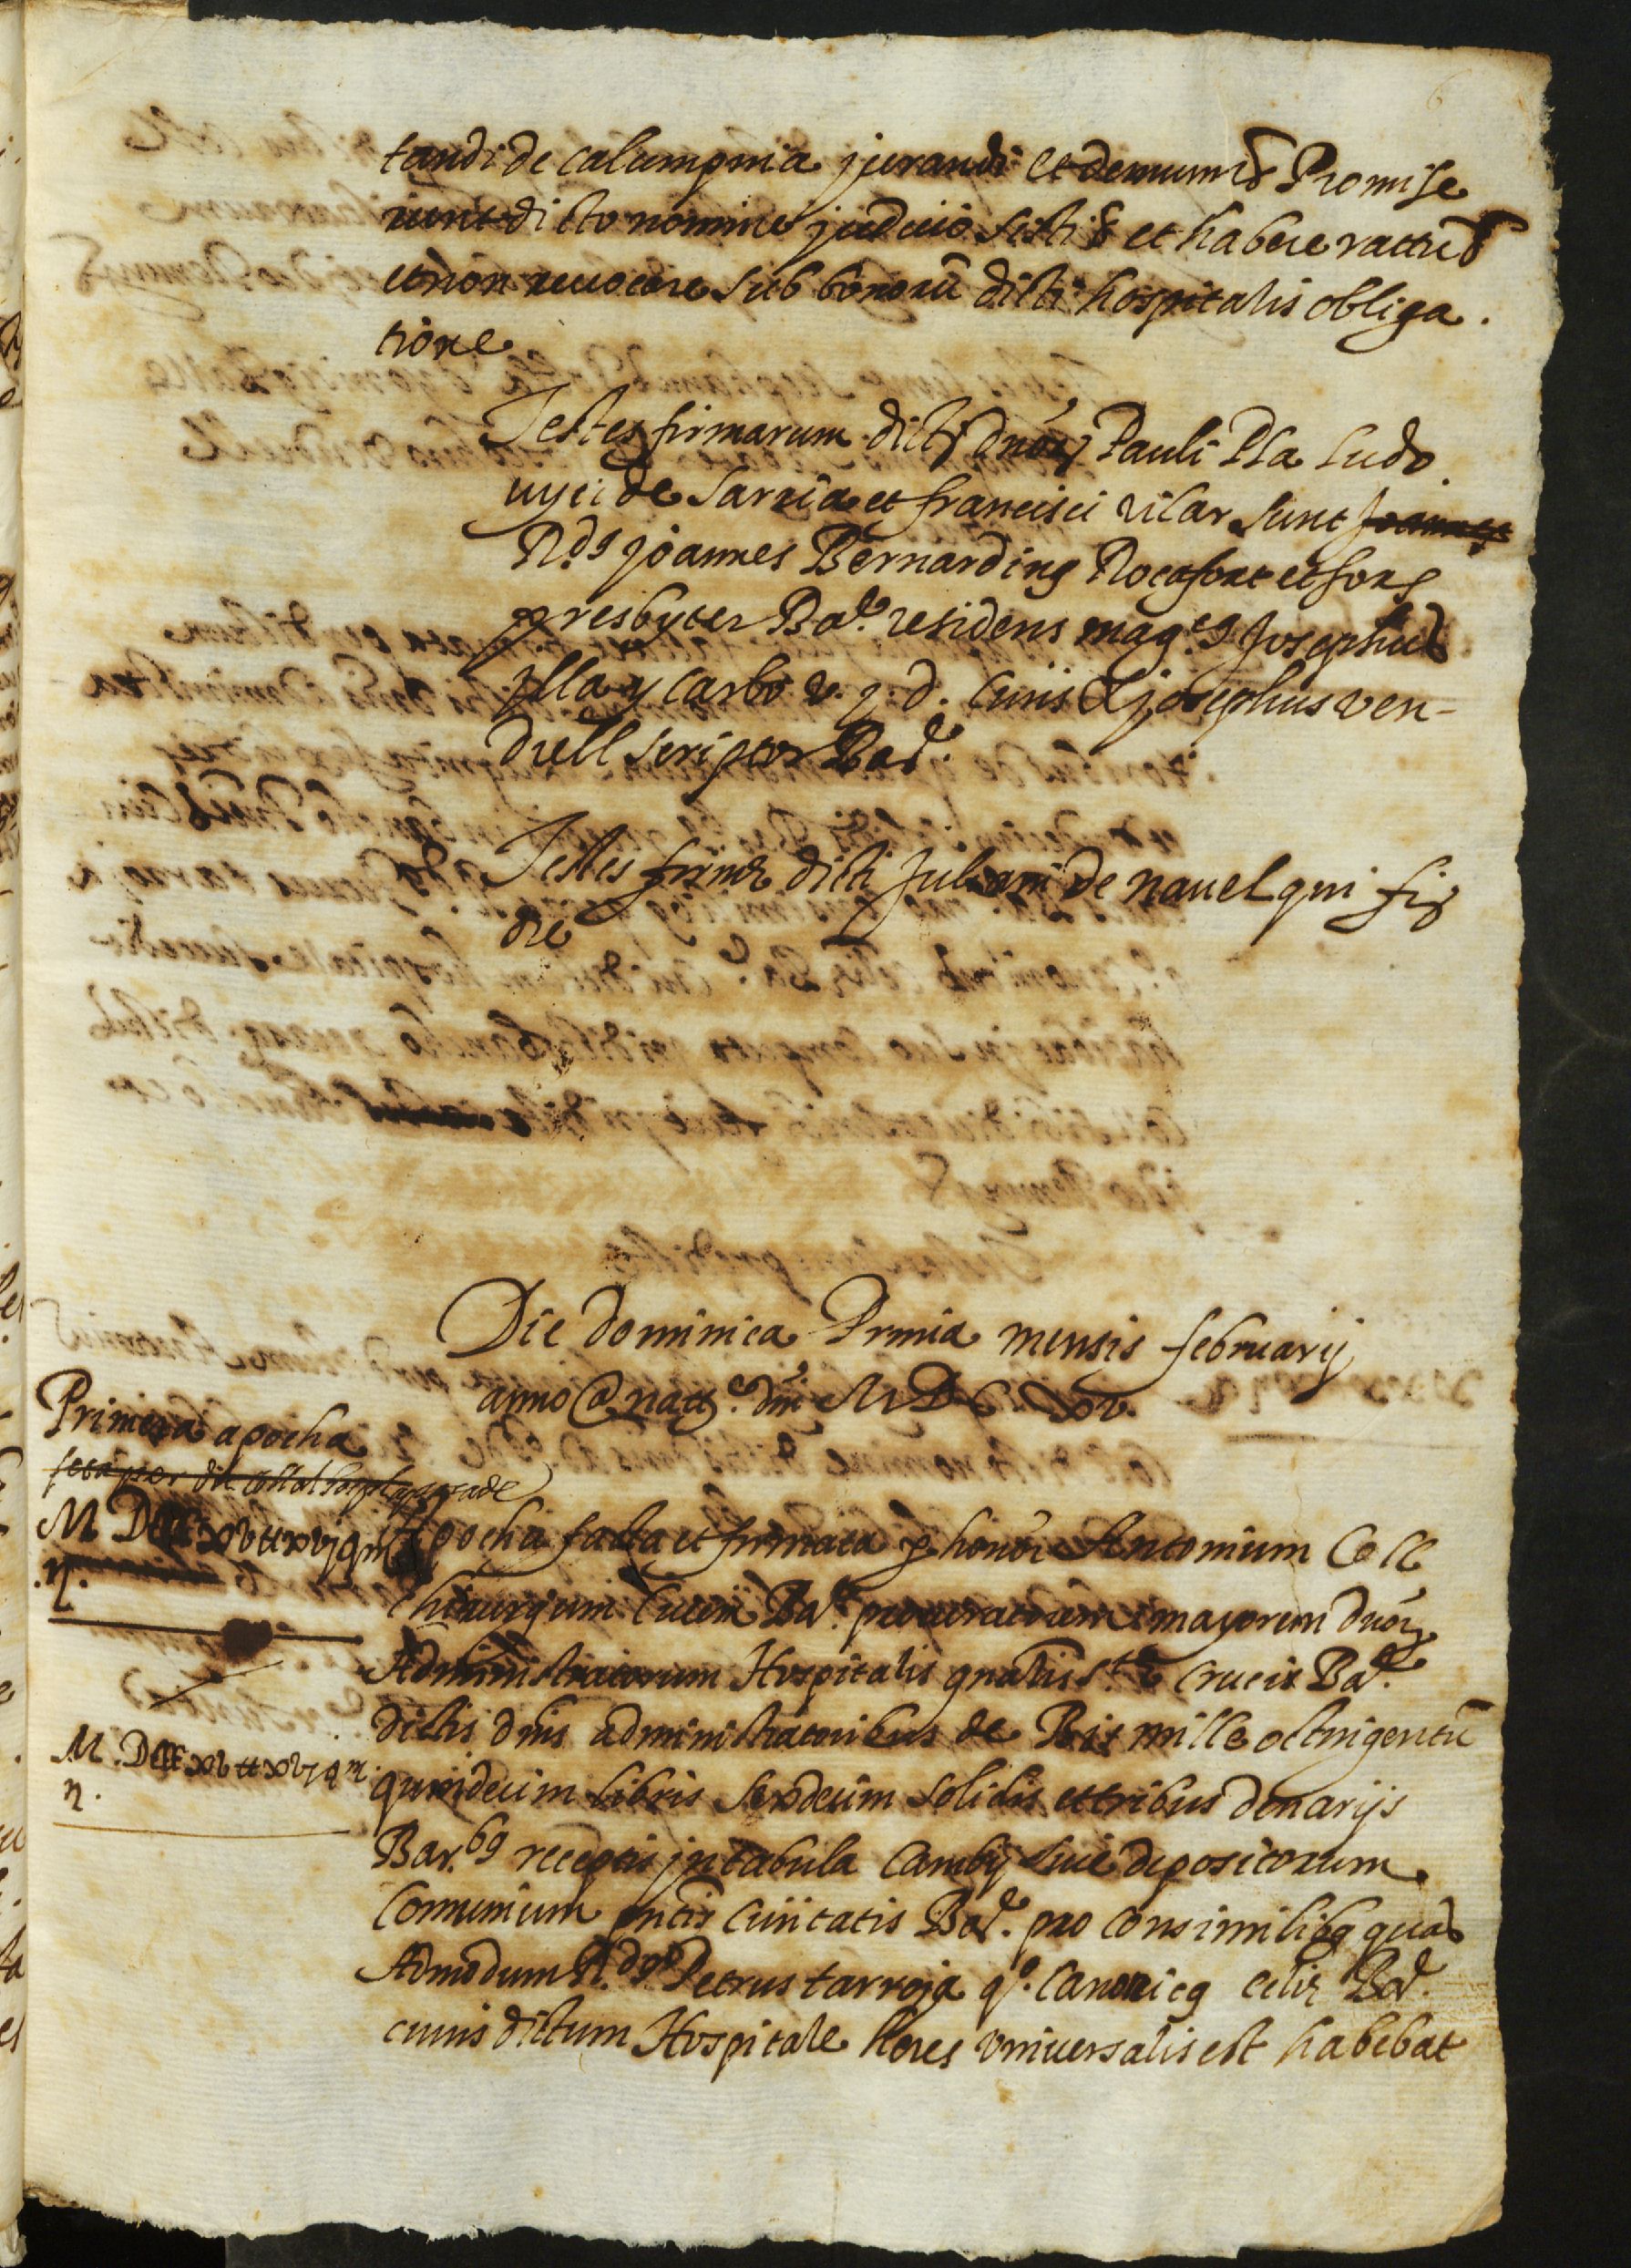 tandi de calumpnia jurandi et demum &c Promise
runt dicto nomine judicio sisti &c et habere ratum &c
et non revocare sub bonorū dicti hospitalis obliga.
tione
Testes firmarum dictor dnor Pauli Pla Ludo
uyci de Sarria et francisci vilar sunt
Rds joannes Bernardinus Rocafort et fons
presbyter Bare residens magcus Josephus
Illa y Carbo v. j. d. Civis & josephus ven-
drell scriptor Bare.
Testes firmæ dicti Juliani de navel qui fir
die
Die dominica Prima mensis februarij
anno @ natte. dni M D C xv.
Primera apocha
M DCCC xv tt xvj s iij
n.
Apocha facta et firmata p honor Antonium Coll
Chirurgum Civem Bare procuratorem mayorem dnor
Administratorum Hospitalis gnalis Stæ Crucis Bare.
dictis dnis administratoribus de Bis mille octingentū
M. DCCC xv tt xvj s iij
n.
quindecim libris sexdecim solidis et tribus denarijs
Bar.bus receptis in tabula Cambij sive depositorum
Comunium pntis Civitatis Bare. pro consimilibus quas
Admodum Rdus Petrus tarroja qo. Canonicus eclie Bare.
cuius dictum Hospitale heres vniversalis est habebat